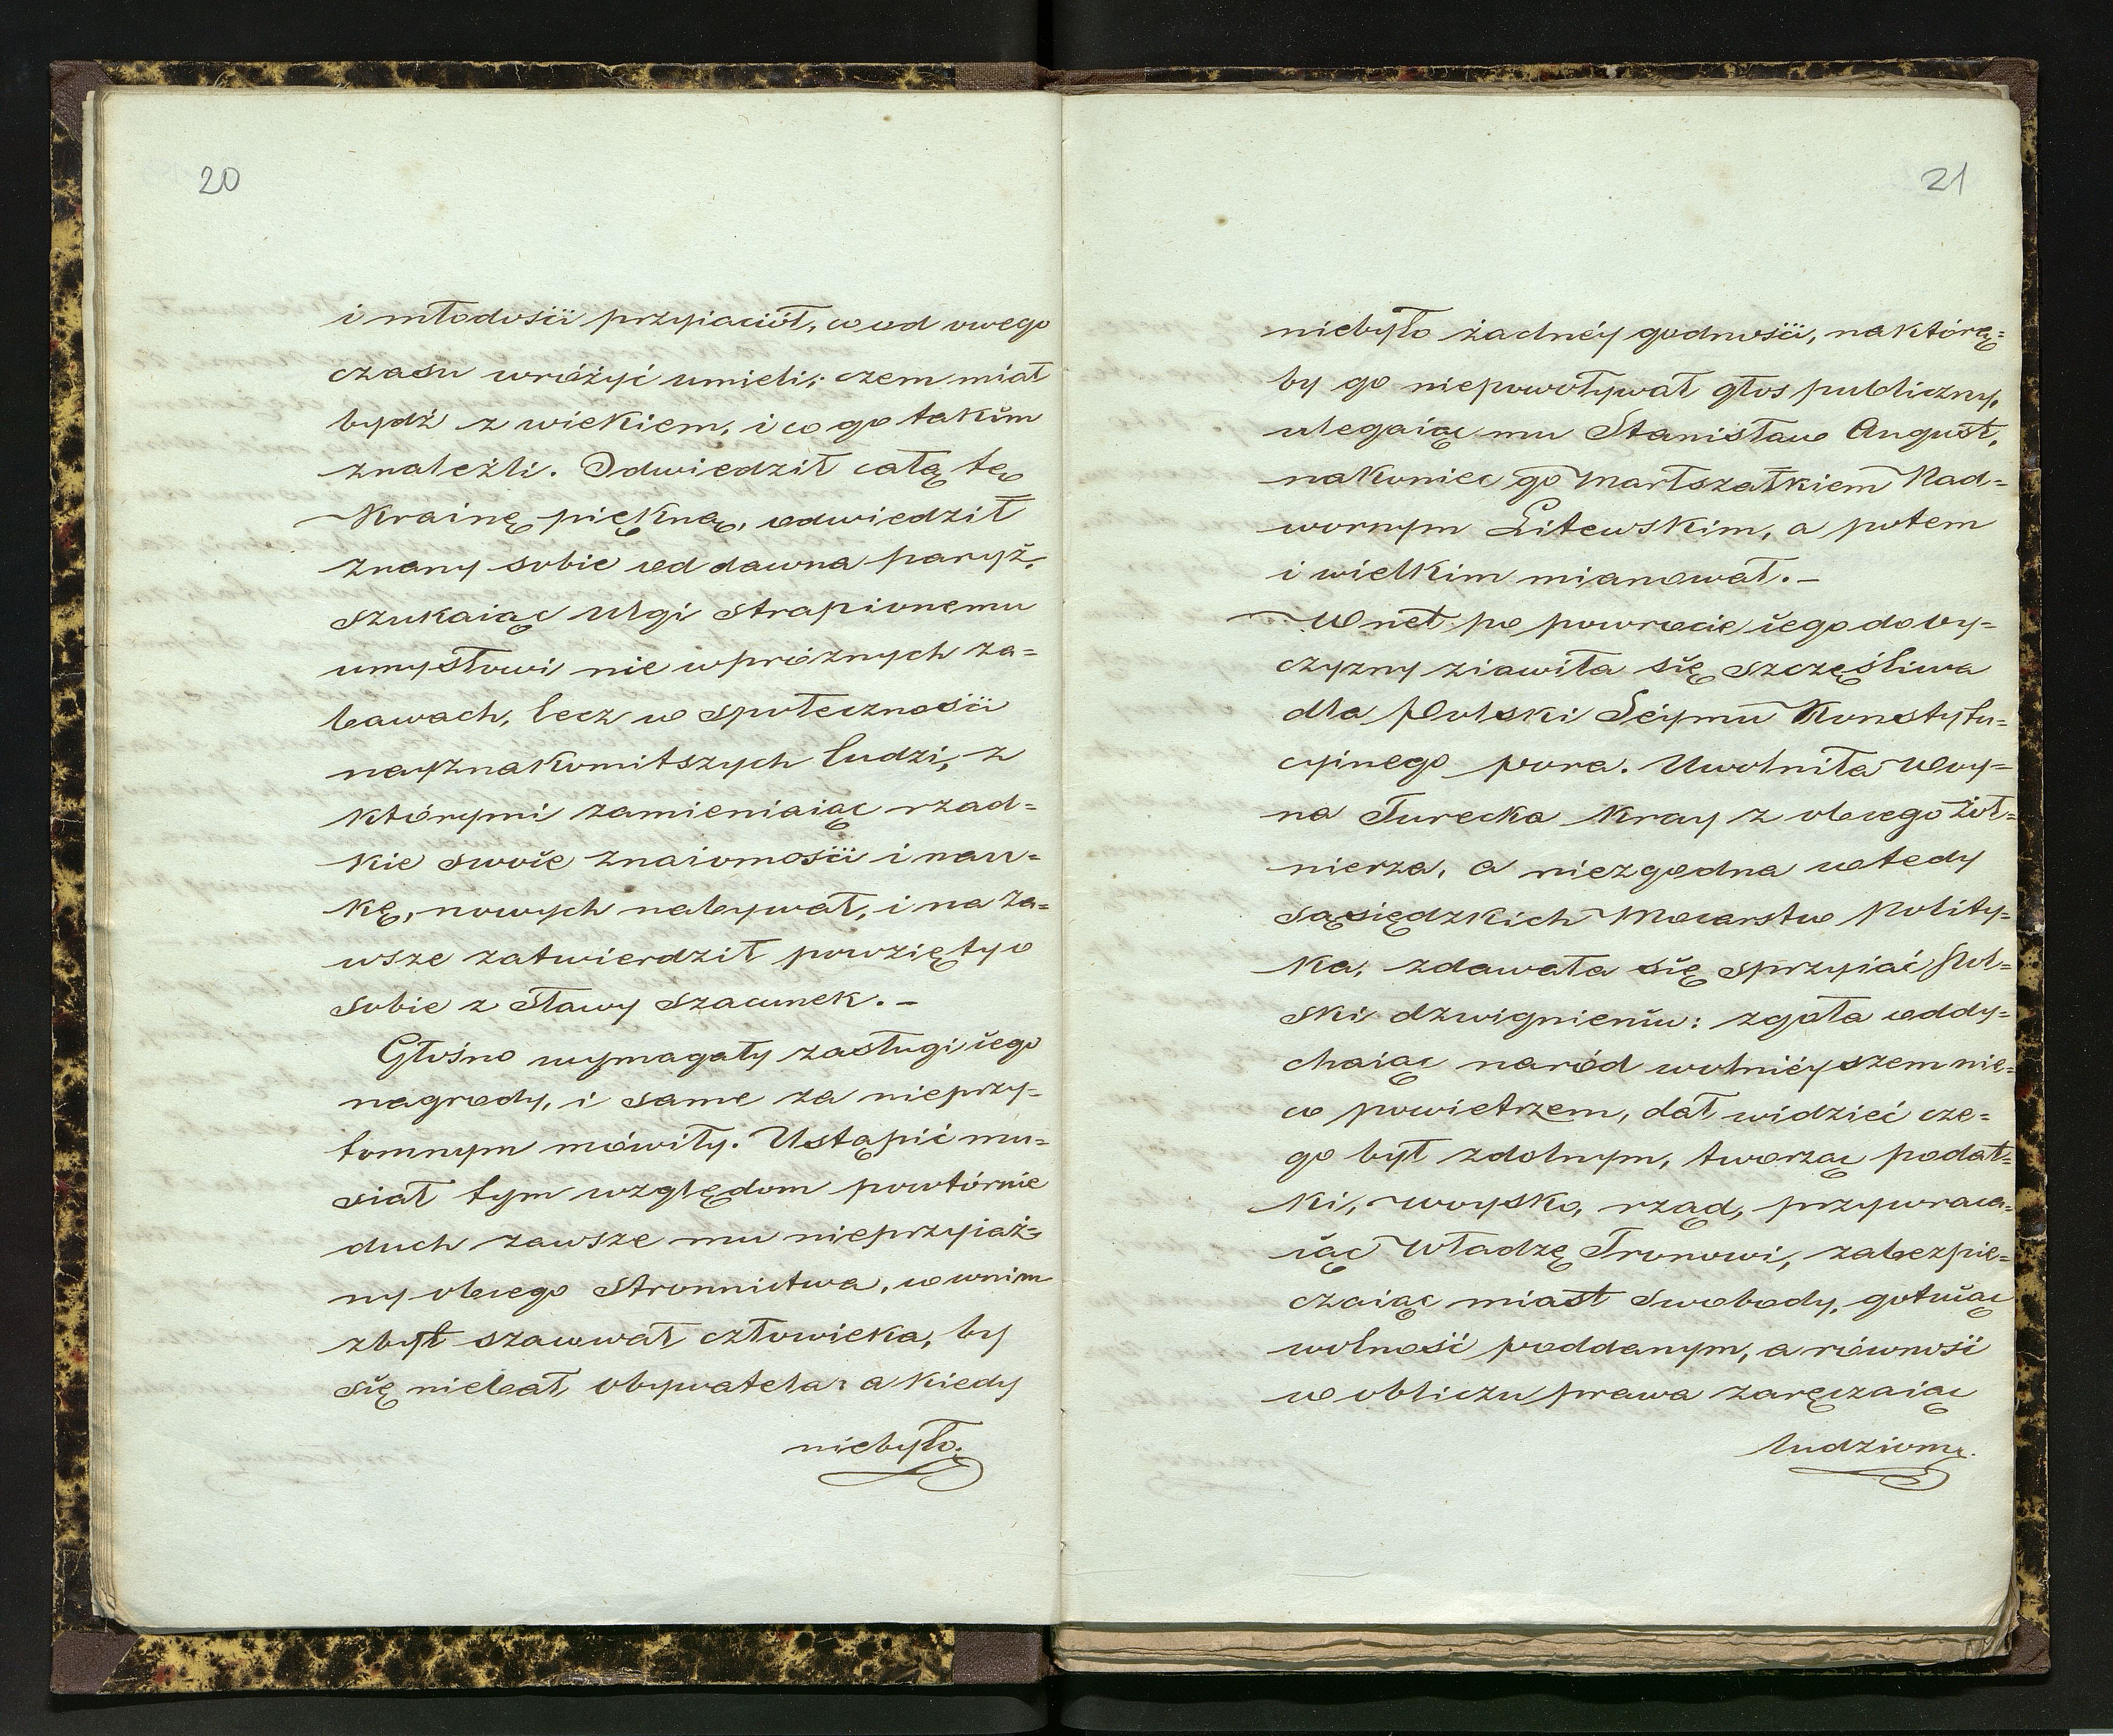 20
i młodości przyiaciół, co od owego
czasu wróżyć umieli, czem miał
bydź z wiekiem, i co go takim
znaleźli. Odwiedził całą tę
Krainę piękną, odwiedził
znany sobie od dawna paryż,
szukaiąc ulgi strapionemu
umysłowi nie w próżnych za=
bawach, lecz w społeczności
nayznakomitszych ludzi, z
którymi zamieniaiąc rzad=
kie swoie znaiomości i nau=
kę, nowych nabywał, i na za=
wsze zatwierdził powzięty o
sobie z Sławy szacunek. –
Głośno wymagały zasługi iego
nagrody, i same za nieprzy=
tomnym mówiły. Ustąpić mu=
siał tym względom powtórnie
duch zawsze mu nieprzyiaź=
ny obcego Stronnictwa, co w nim
zbyt szacował człowieka, by
się niebał obywatela: a kiedy
niebyło
21
niebyło żadnéy godności, na którą=
by go niepowoływał głos publiczny,
ulegaiąc mu Stanisław August,
nakoniec go Marszałkiem Nad=
wornym Litewskim, a potem
i wielkim mianował. –
Wnet po powrocie iego do oy=
czyzny ziawiła się szczęśliwa
dla Polski Séymu Konstytu=
cyinego pora. Uwolniła Woy=
na Turecka Kray z obcego żoł=
nierza, a niezgodna wtedy
sąsiędzkich Mocarstw Polity=
ka, zdawała się sprzyiać Pol=
ski dzwignieniu: zgoła oddy=
chaiąc naród wolniéyszem nie=
co powietrzem, dał widzieć cze=
go był zdolnym, tworząc podat=
ki, woysko, rząd, przywraca=
iąc Władzę Tronowi, zabezpie=
czaiąc miast swobody, gotuiąc
wolność poddanym, a równość
w obliczu prawa zaręczaiąc
ludziom